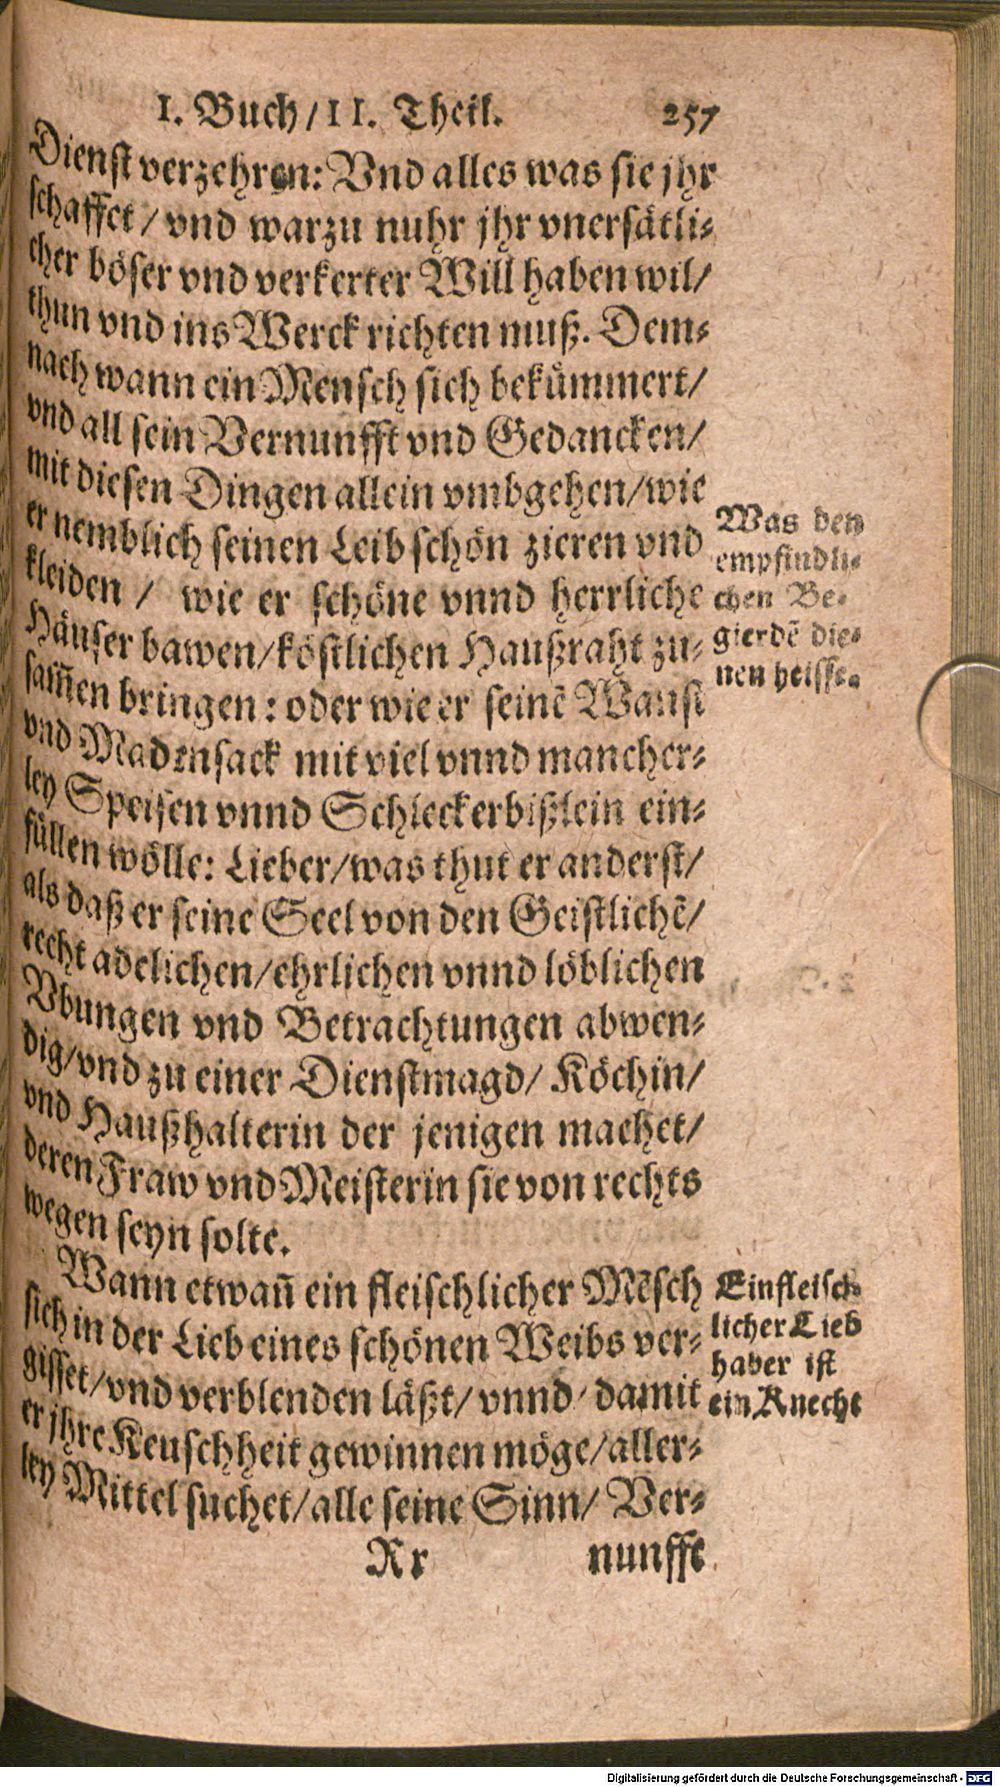 I. Buch/ II. Theil. 257
Dienst verzehren: Vnd alles was sie jhr
schaffet / vnd warzu nuhr jhr vnersätli-
cher böser vnd verkerter Will haben wil/
thun vnd ins Werck richten muß. Dem-
nach wann ein Mensch sich bekümmert/
vnd all sein Vernunfft vnd Gedancken/
mit diesen Dingen allein vmbgehen/wie
er nemblich seinen Leib schön zieren vnd
kleiden / wie er schöne vnnd herrliche
Häuser bawen/köstlichen Haußraht zu-
sam̃en bringen: oder wie er seinẽ Wanst
vnd Madensack mit viel vnnd mancher-
ley Speisen vnnd Schleckerbißlein ein-
füllen wölle: Lieber/was thut er anderst/
als daß er seine Seel von den Geistlichẽ/
recht adelichen/ehrlichen vnnd löblichen
Vbungen vnd Betrachtungen abwen-
dig/vnd zu einer Dienstmagd/ Köchin/
vnd Haußhalterin der jenigen machet/
deren Fraw vnd Meisterin sie von rechts
wegen seyn solte.
Wann etwañ ein fleischlicher Mẽsch
sich in der Lieb eines schönen Weibs ver-
gisset/vnd verblenden läßt/ vnnd damit
er jhre Keuschheit gewinnen möge/aller-
ley Mittel suchet/alle seine Sinn/ Ver-
Rr nunfft
Was den
empfindli-
chen Be-
gierdẽ die-
nen heisse.
Ein fleisch-
licher Lieb
haber ist
ein Knecht
Digitalisierung gefördert durch die Deutsche Forschungsgemeinschaft - DFG